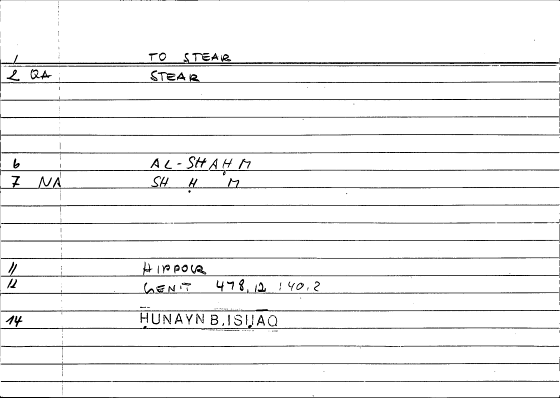 1 TO STEAR
2 QA STEAR
6 AL-SHAḤM
7 NA SH Ḥ M
11 HIPPOCR
12 GENIT 478,12 :40.2
14 ḤUNAYN B. ISḤAQ